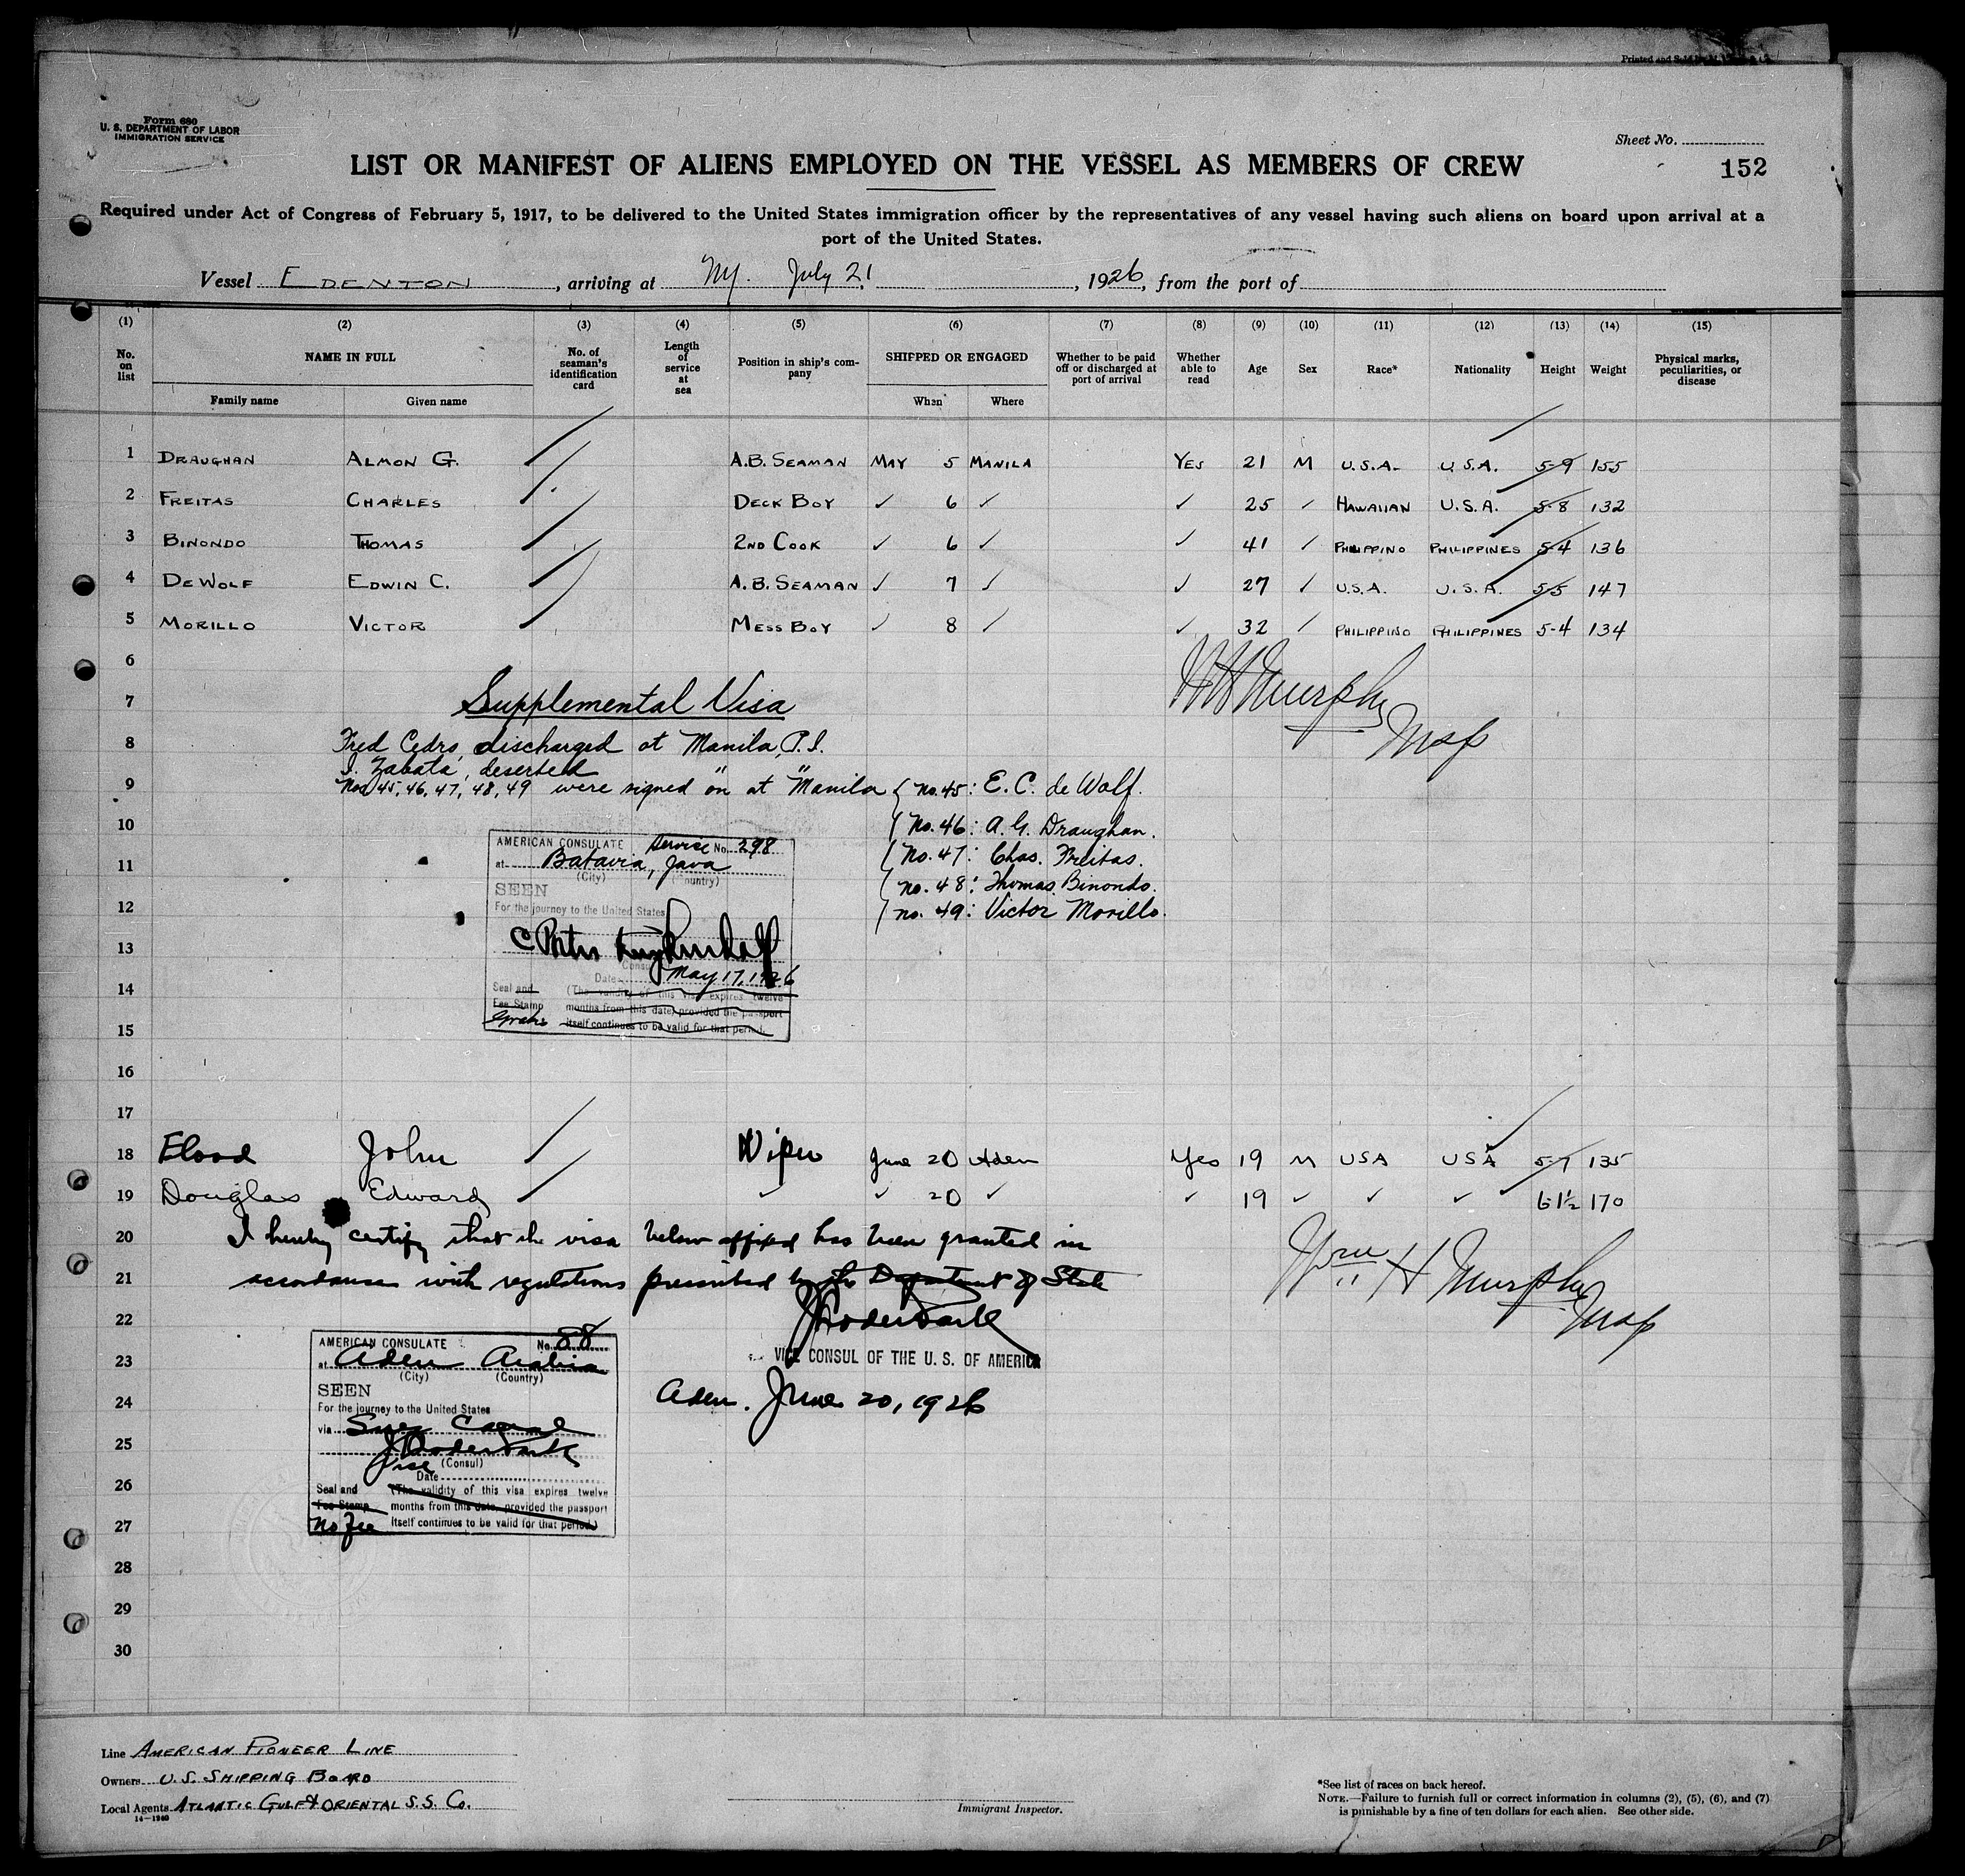 Printed and Sold by
Form 680
U. S. DEPARTMENT OF LABOR
IMMIGRATION SERVICE
Sheet No.
152
LIST OR MANIFEST OF ALIENS EMPLOYED ON THE VESSEL AS MEMBERS OF CREW
Required under Act of Congress of February 5, 1917, to be delivered to the United States immigration officer by the representatives of any vessel having such aliens on board upon arrival at a
port of the United States.
Vessel EDENTON, arriving at NY. July 21, 1926, from the port of
(1) (2) (3) (4) (5) (6) (7) (8) (9) (10) (11) (12) (13) (14) (15)
No. on list NAME IN FULL No. of seaman's identification card Length of service at sea Position in ship's company SHIPPED OR ENGAGED Whether to be paid off or discharged at port of arrival Whether able to read Age Sex Race* Nationality Height Weight Physical marks, peculiarities, or disease
Family name Given name When Where
1 DRAUGHAN ALMON G. A.B. SEAMAN MAY 5 MANILA YES 21 M U.S.A. U.S.A. 5-9 155
2 FREITAS CHARLES DECK BOY ✓ 6 ✓ ✓ 25 ✓ HAWAIIAN U.S.A. 5-8 132
3 BINONDO THOMAS 2ND COOK ✓ 6 ✓ ✓ 41 ✓ PHILIPPINO PHILIPPINES 5-4 136
4 DEWOLF EDWIN C. A.B. SEAMAN ✓ 7 ✓ ✓ 27 ✓ U.S.A. U.S.A. 5-5 147
5 MORILLO VICTOR MESS BOY ✓ 8 ✓ ✓ 32 ✓ PHILIPPINO PHILIPPINES 5-4 134
6
WH Murphy
Insp
7 Supplemental Visa
8 Fred Cedro, discharged at Manila, P.I.
I. Zabata, deserted " "
9 Nos 45, 46, 47, 48, 49 were signed on at Manila { no. 45: E. C. de Wolf.
10 ( No. 46: A. G. Draughan.
11 ( No. 47: Chas. Freitas.
( no. 48: Thomas Binondo.
12 ( no. 49: Victor Morillo.
AMERICAN CONSULATE Service No. 298
at Batavia, Java
(City) (Country)
SEEN
For the journey to the United States
13
Consul
Date May 17, 1926
14 Seal and (The validity of this visa expires twelve
Fee Stamp months from this date, provided the passport
15 Gratis itself continues to be valid for that period.
16
17
18 Flood John Wiper June 20 Aden Yes 19 M USA USA 5-7 135
19 Douglas Edward ✓ ✓ 20 ✓ ✓ 19 ✓ ✓ ✓ 6-1½ 170
20 I hereby certify that the visa below affixed has been granted in
21 accordance with regulations prescribed by the Department of State
Wm H Murphy
Insp
22
23 VICE CONSUL OF THE U. S. OF AMERICA
24 Aden. June 20, 1926
AMERICAN CONSULATE No. 88
at Aden Arabia
(City) (Country)
SEEN
For the journey to the United States
via Suez Canal
25
Vice (Consul)
Date
26 Seal and (The validity of this visa expires twelve
Fee Stamp months from this date, provided the passport
27 No Fee itself continues to be valid for that period.)
28
29
30
Line AMERICAN PIONEER LINE
Owners U.S. SHIPPING BOARD
Local Agents ATLANTIC GULF & ORIENTAL S.S. Co.
14—1240
Immigrant Inspector.
*See list of races on back hereof.
NOTE.—Failure to furnish full or correct information in columns (2), (5), (6), and (7)
is punishable by a fine of ten dollars for each alien. See other side.